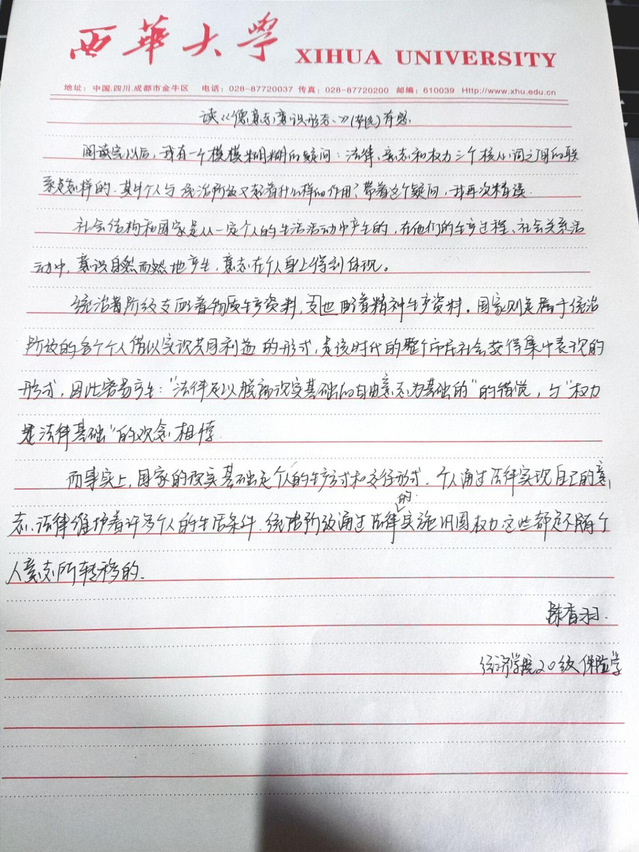 西華大学 XIHUA UNIVERSITY
地址：中国.四川.成都市金牛区 电话：028-87720037 传真：028-87720200 邮编：610039 Http://www.xhu.edu.cn
读《德意志意识形态》(节选)有感
阅读完以后，我有一个模模糊糊的疑问：法律、意志和权力三个核心词之间的联
系是怎样的.其中个人与统治阶级又起着什么样的作用？带着这个疑问，我再次精读.
社会结构和国家是从一定个人的生活活动中产生的，在他们的生产过程、社会关系活
动中，意识自然而然地产生，意志在个人身上得到体现。
统治者阶级支配着物质生产资料，也支配着精神生产资料。国家则是属于统治
阶级的各个个人借以实现其共同利益的形式，是该时代的整个市民社会获得集中表现的
形式，因此容易产生："法律是以脱离现实基础的自由意志为基础的"的错觉，与"权力
是法律基础"的观念相悖.
而事实上，国家的现实基础是个人的生产方式和交往形式.个人通过法律实现自己的意
志、法律维护着许多个人的生活条件.统治阶级通过法律的实施巩固权力这些都是不随个
人意志所转移的.
陈香羽.
经济学院20级保险学